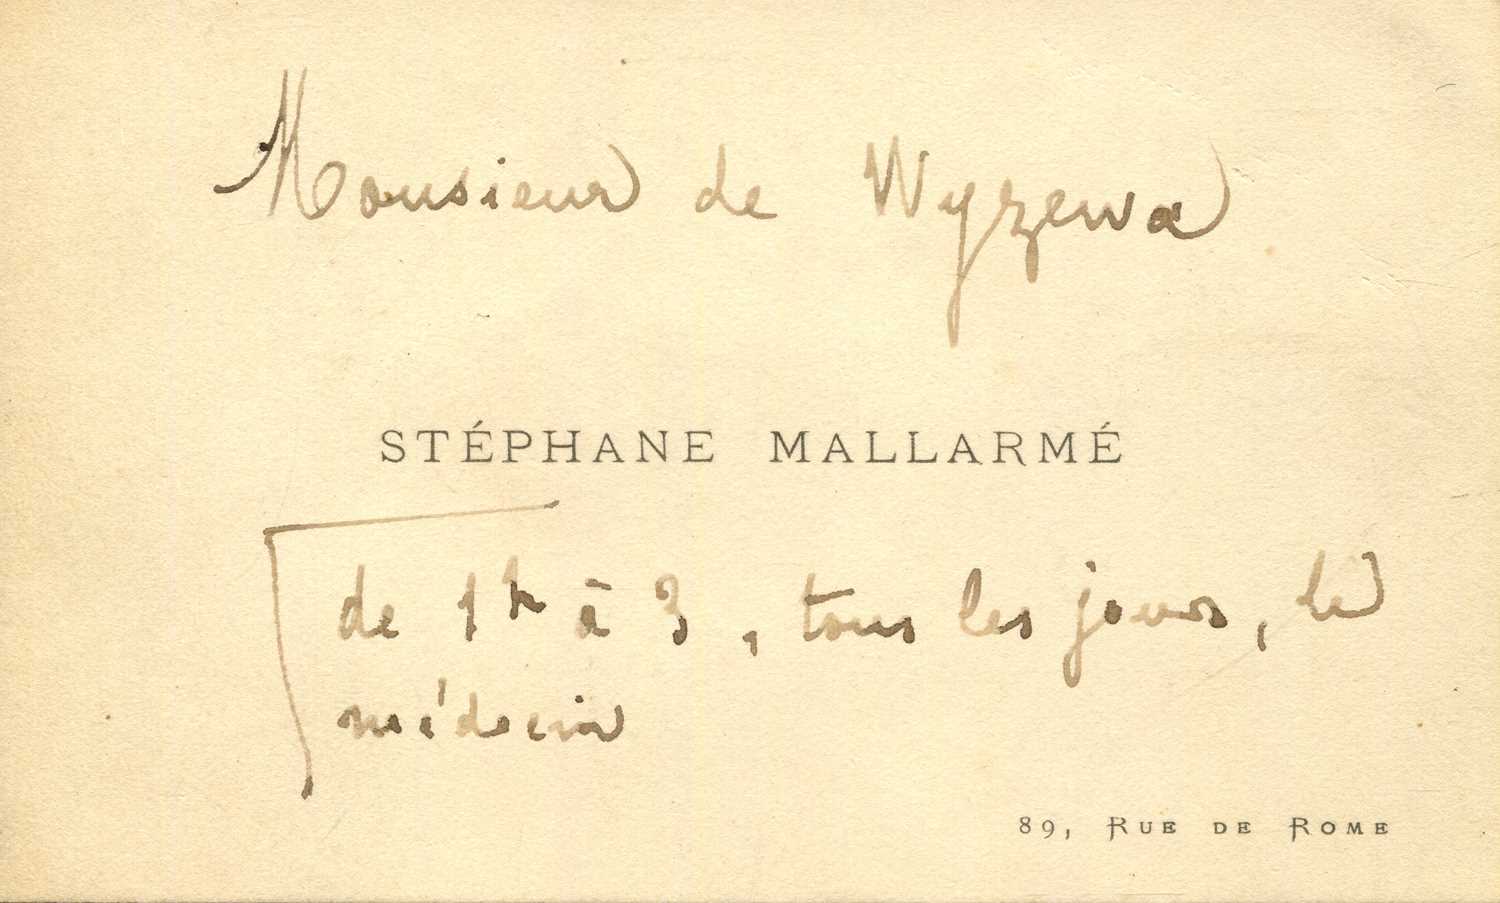 Monsieur de Wyzewa
STÉPHANE MALLARMÉ
de 1h à 3, tous les jours, le
médecin
89, RUE DE ROME